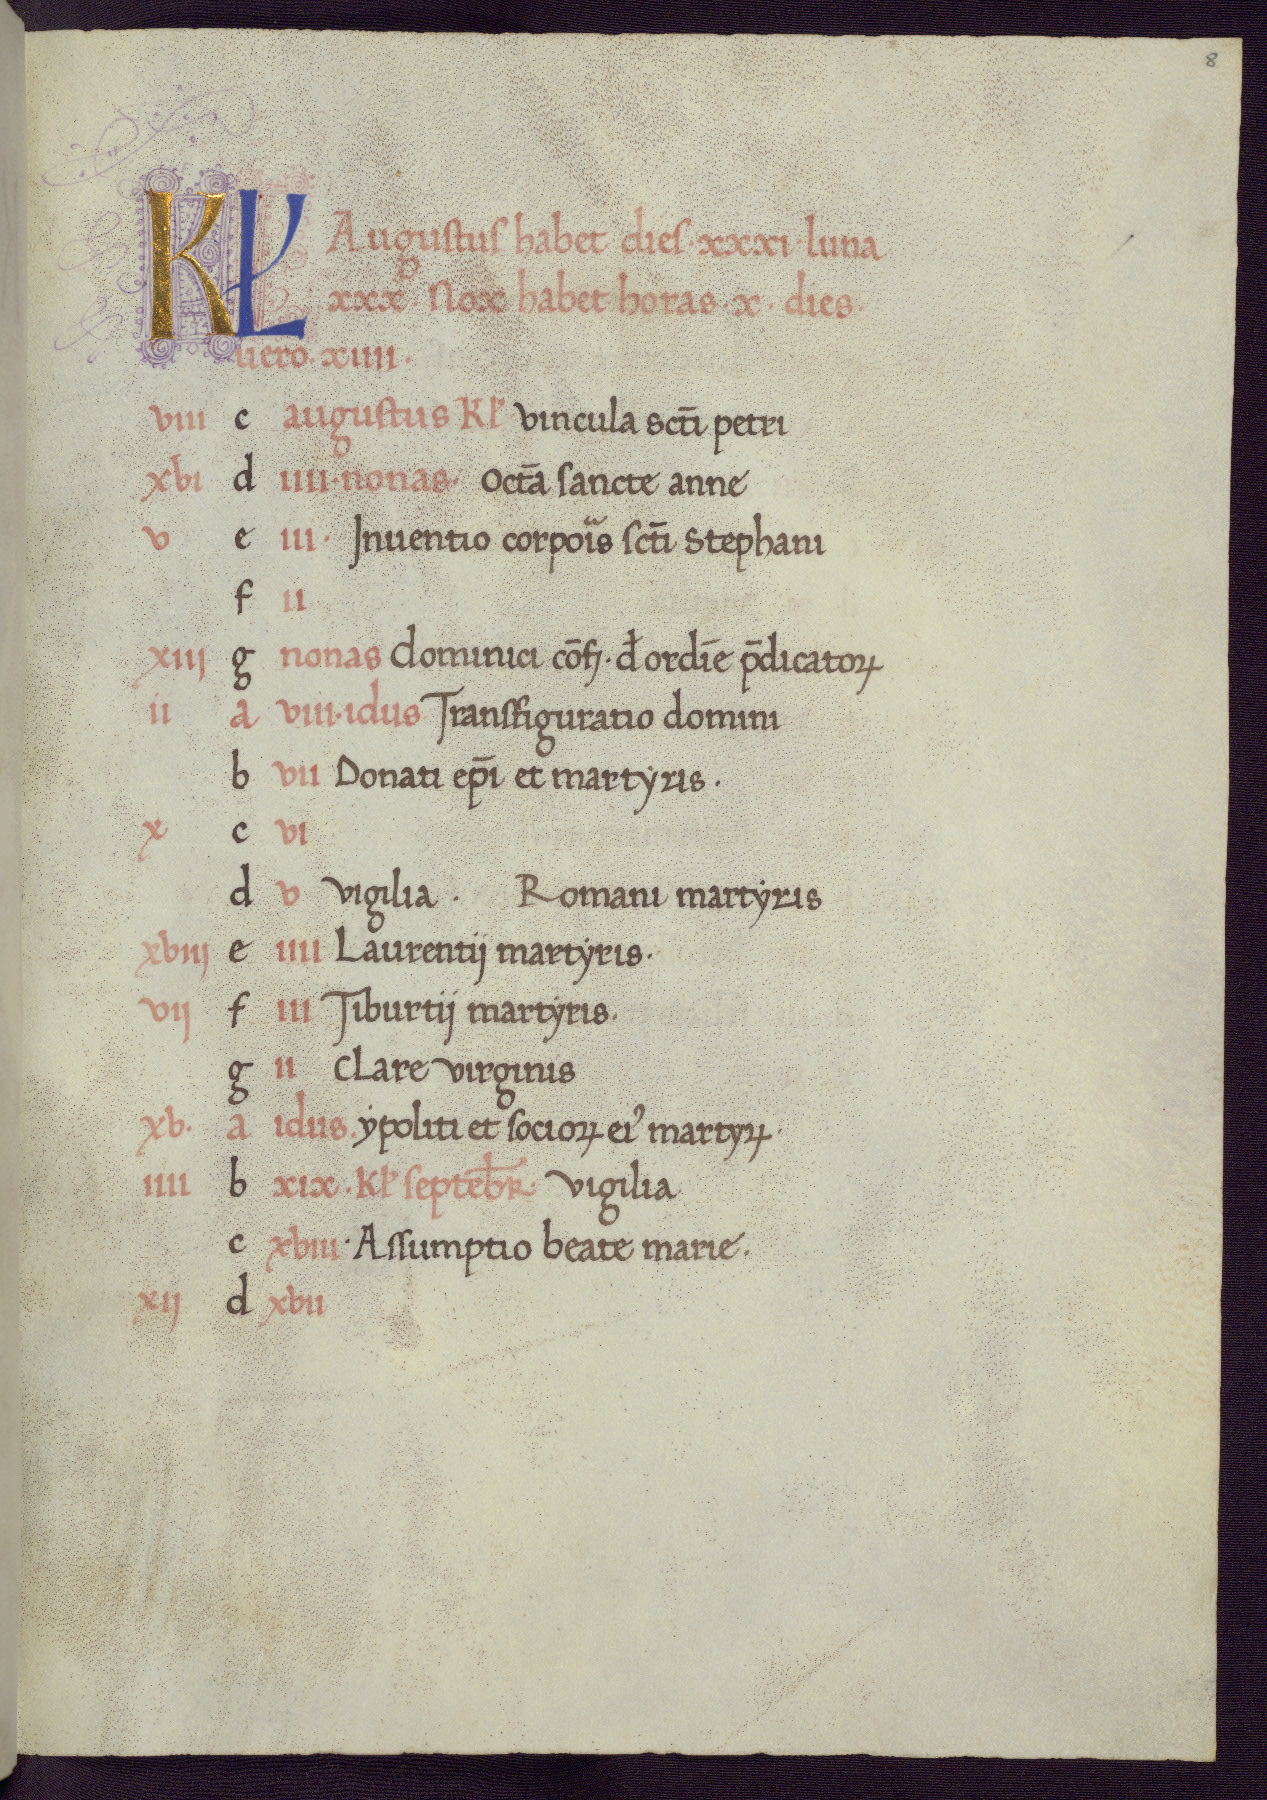 8
KL Augustus habet dies · xxxi · luna
xxx · Nox habet horas · x · dies ·
uero · xiiii ·
viii c augustus Kl' vincula sct̄i petri
xvi d iiii · nonas · Octā sancte anne
v e iii · Inuentio corpoīs sct̄i Stephani
f ii
xiij g nonas dominici cōf · đ ordīe p̄dicatoꝝ
ii a viii · idus Transfiguratio domini
b vii Donati ep̄i et martẏris ·
x c vi
d v vigilia · Romani martẏris
xviij e iiii Laurentij martẏris ·
vij f iii Tiburtij martẏris ·
g ii Clare virginis
xv · a idus · ẏpoliti et socioꝝ ei' martyꝝ ·
iiii b xix · Kl' septēbr̄ · vigilia
c xviii · Assumptio beate marie ·
xij d xvii